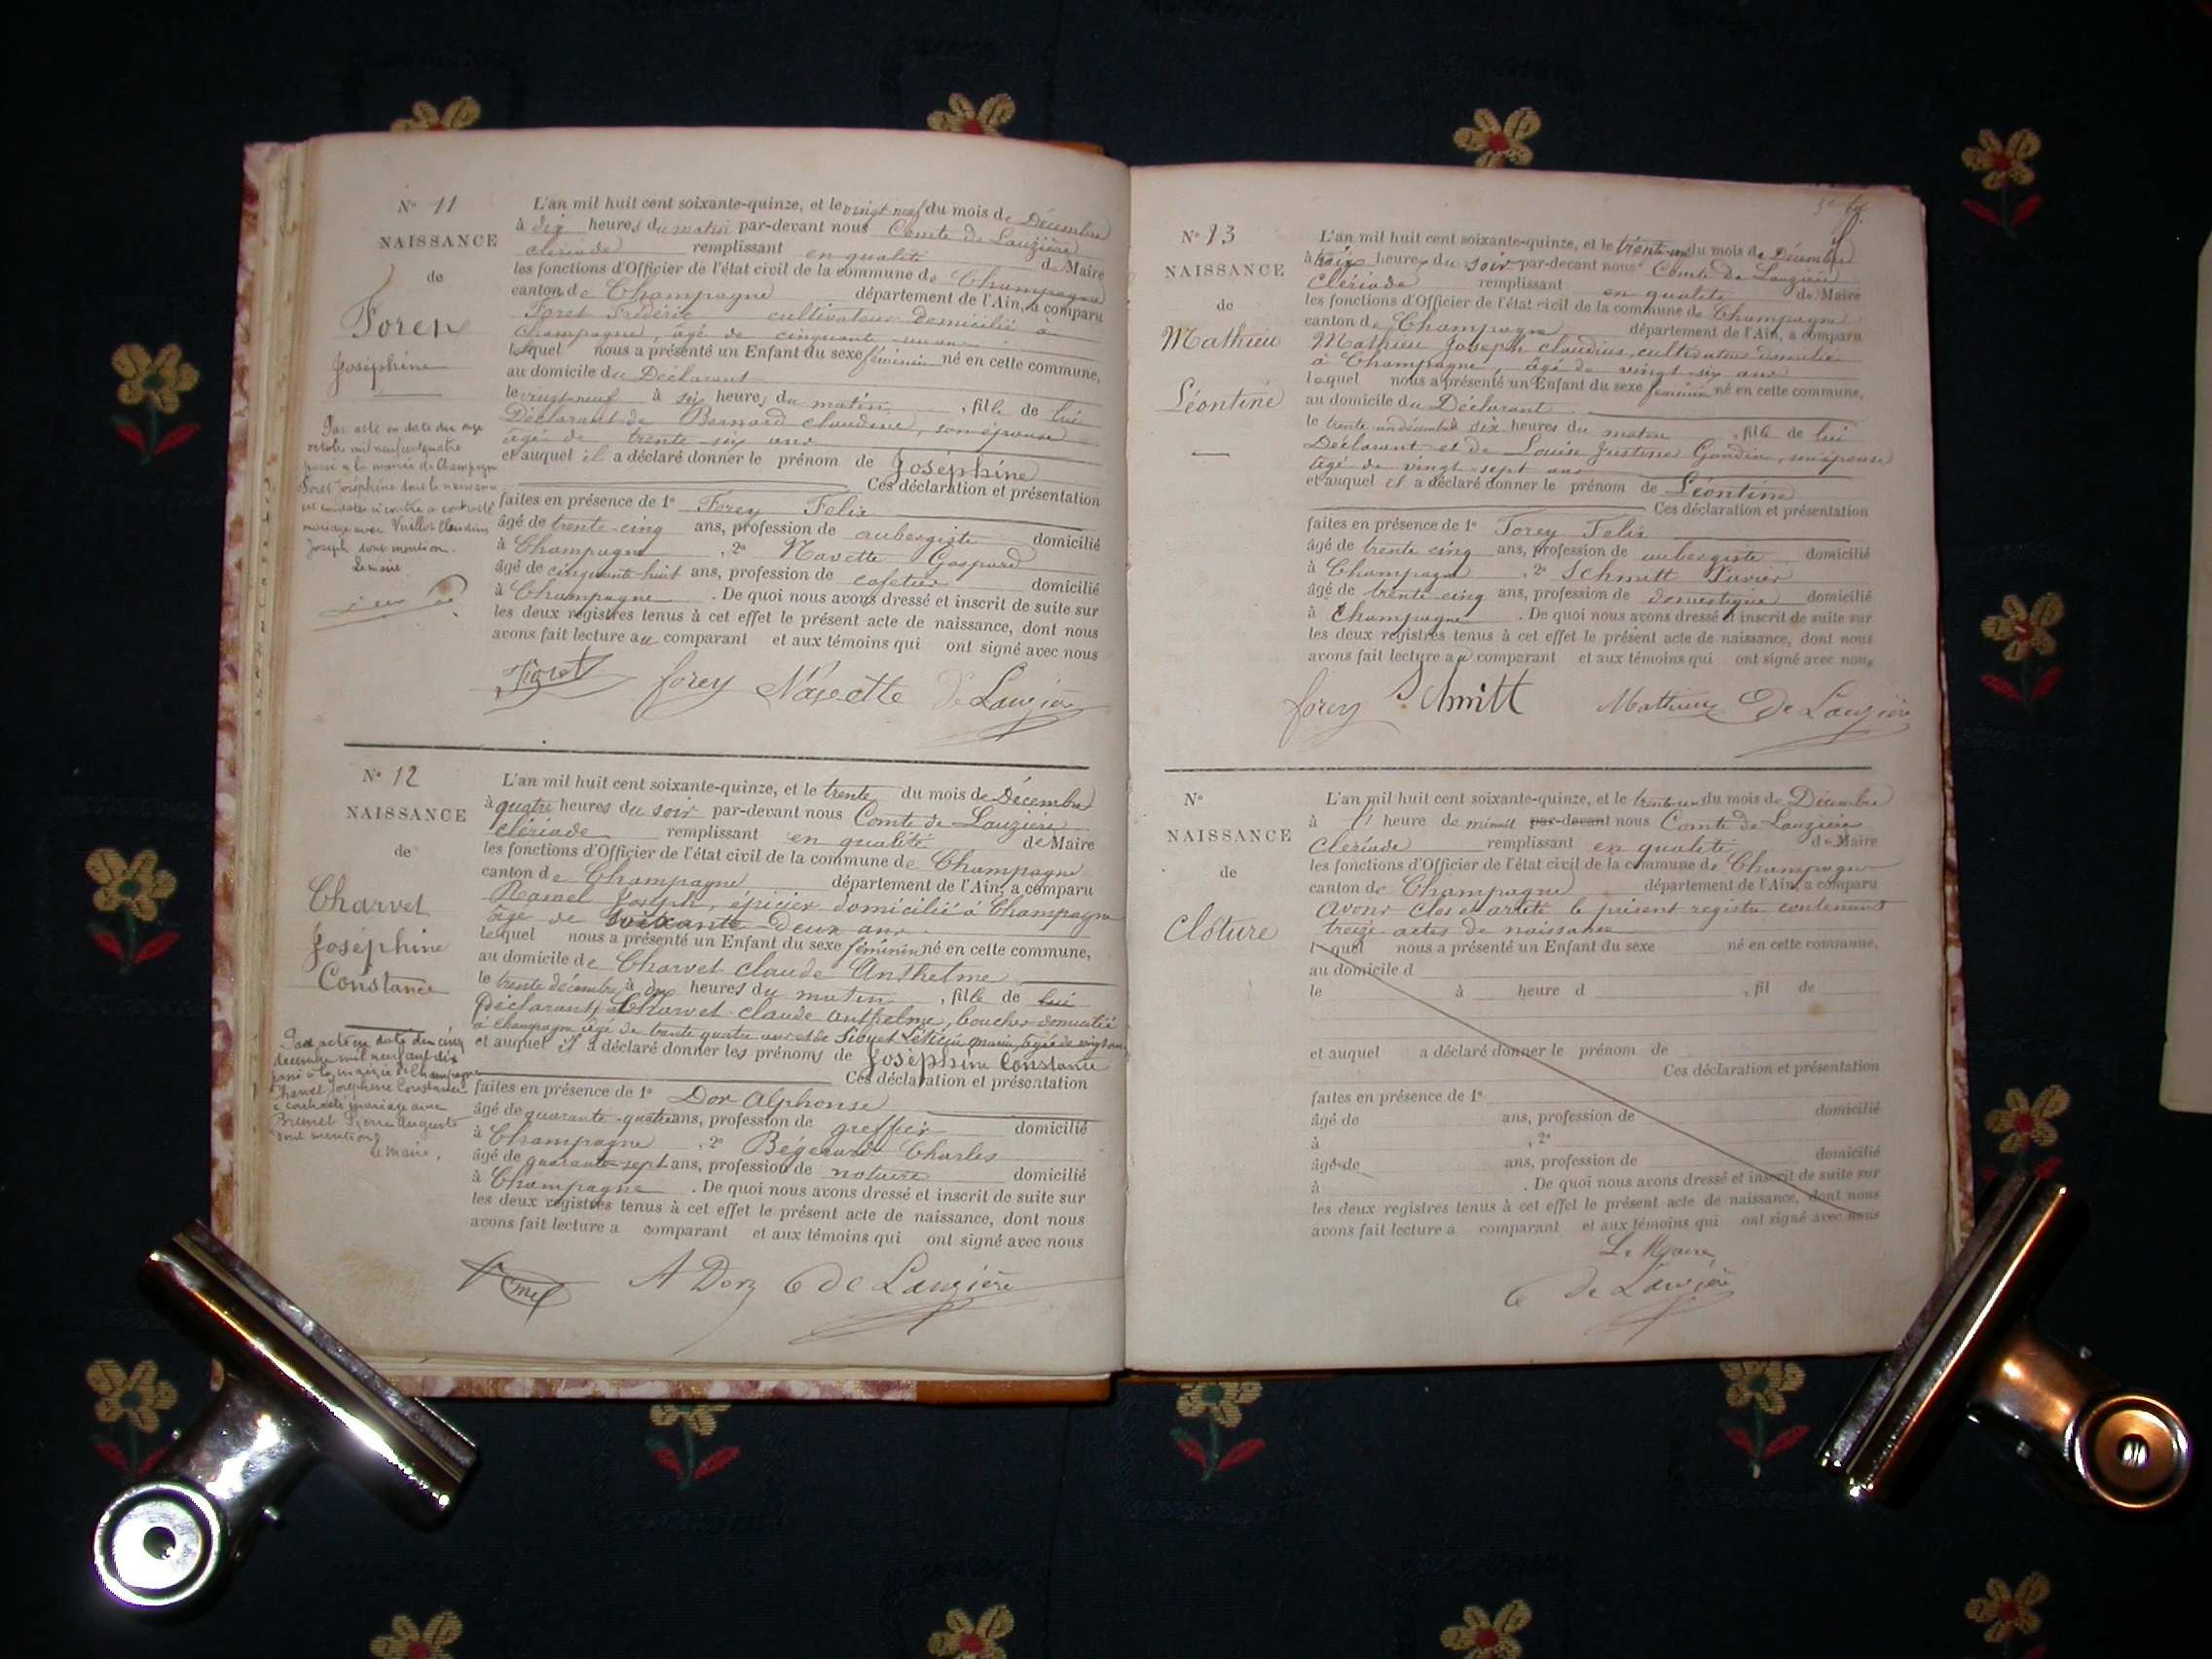 N° 11
NAISSANCE
de
Foret
Joséphine
Par acte en date du onze
octobre mil neuf cent quatre
passé à la mairie de Champagne
Foret Joséphine dont la naissance
est constatée ci contre a contracté
mariage avec Vuillot Claudius
Joseph dont mention.
Le maire
L'an mil huit cent soixante-quinze, et le vingt neuf du mois de Décembre
à dix heures du matin par-devant nous Comte de Lauzière
clériade remplissant en qualité de Maire
les fonctions d'Officier de l'état civil de la commune de Champagne
canton de Champagne département de l'Ain, a comparu
Foret Frédéric cultivateur domicilié à
Champagne, âgé de cinquante un ans
lequel nous a présenté un Enfant du sexe féminin né en cette commune,
au domicile du Déclarant
le vingt-neuf à six heures du matin, fille de lui
Déclarant de Bernard claudine, son épouse
âgée de trente six ans
et auquel il a déclaré donner le prénom de Joséphine
Ces déclaration et présentation
faites en présence de 1° Forey Felix
âgé de trente-cinq ans, profession de aubergiste domicilié
à Champagne, 2° Navette Gaspard
âgé de cinquante-huit ans, profession de cafetier domicilié
à Champagne. De quoi nous avons dressé et inscrit de suite sur
les deux registres tenus à cet effet le présent acte de naissance, dont nous
avons fait lecture au comparant et aux témoins qui ont signé avec nous
Foret forey Navette De Lauzière
N° 12
NAISSANCE
de
Charvet
Joséphine
Constance
Par acte en date du cinq
décembre mil neuf cent dix
passé à la mairie de Champagne
Charvet Joséphine Constance
a contracté mariage avec
Brunet Pierre Auguste
dont mention
Le maire.
L'an mil huit cent soixante-quinze, et le trente du mois de Décembre
à quatre heures du soir par-devant nous Comte de Lauzière
clériade remplissant en qualité de Maire
les fonctions d'Officier de l'état civil de la commune de Champagne
canton de Champagne département de l'Ain, a comparu
Ramel Joseph, épicier domicilié à Champagne
âgé de soixante-deux ans
lequel nous a présenté un Enfant du sexe féminin né en cette commune,
au domicile de Charvet claude Anthelme
le trente décembre à dix heures du matin, fille de lui
Déclarant, Charvet claude anthelme, boucher domicilié
à champagne âgé de trente quatre ans et de Siquet Léticia marie, âgée de vingt ans
et auquel il a déclaré donner les prénoms de Joséphine Constance
Ces déclaration et présentation
faites en présence de 1° Dor Alphonse
âgé de quarante-quatre ans, profession de greffier domicilié
à Champagne, 2° Bégerard Charles
âgé de quarante-sept ans, profession de notaire domicilié
à Champagne. De quoi nous avons dressé et inscrit de suite sur
les deux registres tenus à cet effet le présent acte de naissance, dont nous
avons fait lecture a comparant et aux témoins qui ont signé avec nous
A Dor C de Lauzière
N° 13
NAISSANCE
de
Mathieu
Léontine
L'an mil huit cent soixante-quinze, et le trente-un du mois de Décembre
à trois heures du soir par-devant nous Comte de Lauzière
clériade remplissant en qualité de Maire
les fonctions d'Officier de l'état civil de la commune de Champagne
canton de Champagne département de l'Ain, a comparu
Mathieu Joseph claudius, cultivateur domicilié
à Champagne, âgé de vingt-six ans
lequel nous a présenté un Enfant du sexe féminin né en cette commune,
au domicile du Déclarant
le trente-un décembre à six heures du matin, fille de lui
Déclarant et de Louise Justine Gondin, son épouse
âgée de vingt-sept ans
et auquel il a déclaré donner le prénom de Léontine
Ces déclaration et présentation
faites en présence de 1° Forey Felix
âgé de trente cinq ans, profession de aubergiste domicilié
à Champagne, 2° Schmitt Xavier
âgé de trente-cinq ans, profession de domestique domicilié
à Champagne. De quoi nous avons dressé et inscrit de suite sur
les deux registres tenus à cet effet le présent acte de naissance, dont nous
avons fait lecture au comparant et aux témoins qui ont signé avec nous
forey Schmitt Mathieu C De Lauzière
N°
NAISSANCE
de
Clôture
L'an mil huit cent soixante-quinze, et le trente-un du mois de Décembre
à heure de minuit par-devant nous Comte de Lauzière
Clériade remplissant en qualité de Maire
les fonctions d'Officier de l'état civil de la commune de Champagne
canton de Champagne département de l'Ain, a comparu
Avons clos et arrêté le présent registre contenant
treize actes de naissance
l quel nous a présenté un Enfant du sexe né en cette commune,
au domicile d
le à heure d , fil de
et auquel a déclaré donner le prénom de
Ces déclaration et présentation
faites en présence de 1°
âgé de ans, profession de domicilié
à , 2°
âgé de ans, profession de domicilié
à . De quoi nous avons dressé et inscrit de suite sur
les deux registres tenus à cet effet le présent acte de naissance, dont nous
avons fait lecture a comparant et aux témoins qui ont signé avec nous
Le Maire
C de Lauzière